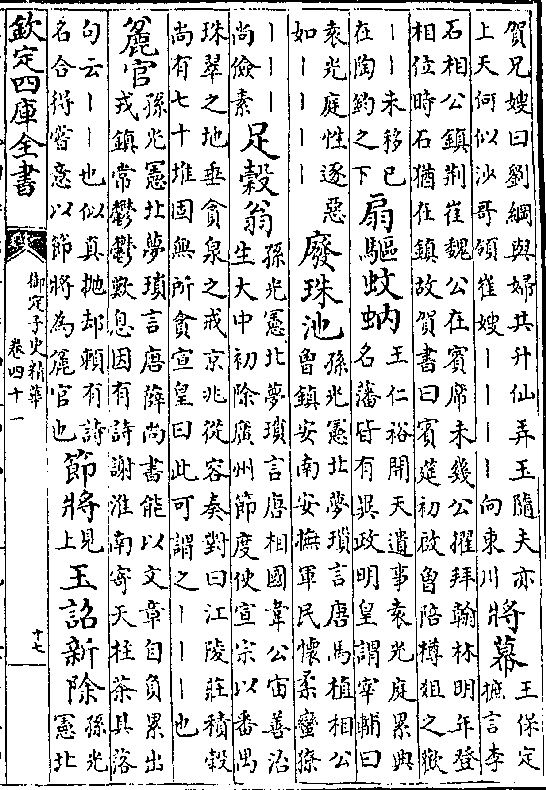 賀兄嫂曰劉綱與婦共升仙弄玉隨夫亦
上天何似沙哥領崔嫂丨丨丨丨向東川
將幕
王保定
摭言李
石相公鎮荆崔魏公在賓席未幾公擢拜翰林明年登
相位時石猶在鎮故賀書曰賓筵初啟曾陪樽俎之歡
丨丨未移已
在陶鈞之下
扇驅蚊蚋
王仁裕開天遺事袁光庭累典
名藩皆有異政明皇謂宰輔曰
袁光庭性逐惡
如丨丨丨丨
廢珠池
孫光憲北夢瑣言唐馬植相公
曾鎮安南安撫軍民懷柔蠻獠
丨丨丨丨
尚儉素
足穀翁
孫光憲北夢瑣言唐相國韋公宙善治
生大中初除廣州節度使宣宗以番禺
珠翠之地垂貪泉之戒京兆從容奏對曰江陵莊積穀
尚有七十堆固無所貪宣皇曰此可謂之丨丨丨也
麄官
孫光憲北夢瑣言唐薛尚書能以文章自負累出
戎鎮常鬱鬱歎息因有詩謝淮南寄天柱茶其落
句云丨丨也似真抛却頼有詩
名合得嘗意以節將為麄官也
節將
見
上
玉詔新除
孫光
憲北
欽定四庫全書
御定子史精華
卷四十一
十七